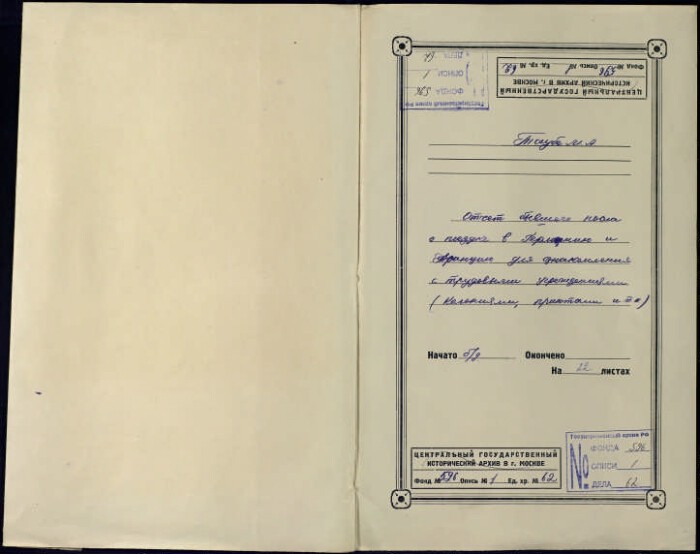 № ДЕЛА 62
ОПИСИ 1
ФОНДА 596
Государственный архив РФ
ЦЕНТРАЛЬНЫЙ ГОСУДАРСТВЕННЫЙ
ИСТОРИЧЕСКИЙ АРХИВ В г. МОСКВЕ
Фонд № 596 Опись № 1 Ед. хр. № 62
М А
Отчет
о поездке в Германию и
Францию для ознакомления
с трудовыми учреждениями
(колониями, приютами и т д)
Начато б/д Окончено
На 22 листах
ЦЕНТРАЛЬНЫЙ ГОСУДАРСТВЕННЫЙ
ИСТОРИЧЕСКИЙ АРХИВ В г. МОСКВЕ
Фонд № 596 Опись № 1 Ед. хр. № 62
Государственный архив РФ
№ ФОНДА 596
ОПИСИ 1
ДЕЛА 62